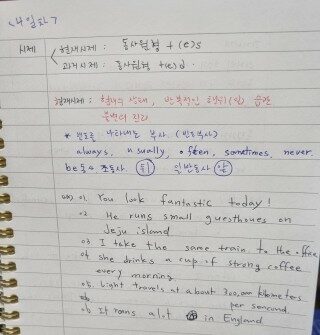 시제
현재시제 : 동사원형 +(e)s
과거시제 : 동사원형 +(e)d.
현재시제 : 현재의 상태, 반복적인 습관
불변의 진리
* 빈도를 나타내는 부사 (빈도부사)
always, usually, often, sometimes, never.
be동사 조동사 (뒤) 일반동사 (앞)
ex) 01. You look fantastic today!
02 He runs small guesthouses on
Jeju island
03 I take the same train to the office
04 she drinks a cup of strong coffee
every morning
05. Light travels at about 300,000 kilometers
per second
06 It rains a lot in England